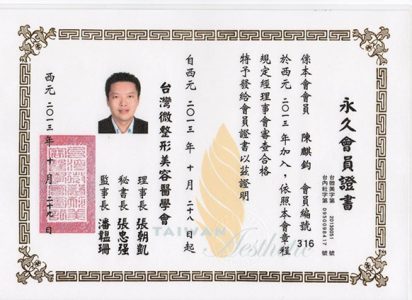 永久會員證書
台體美字第0130051號
台內社字第0950098417號
係本會會員 陳麒鈞 會員編號316
於西元二0一三年加入，依照本會章程
規定經理事會審查合格
特予發給會員證書以茲證明
自西元二0一三年十月二十八日起
台灣微整形美容醫學會
理事長 張朝凱
秘書長 張忠強
監事長 潘韞珊
西元二0一三年十月二十九日
TAIWAN
Aesthetic